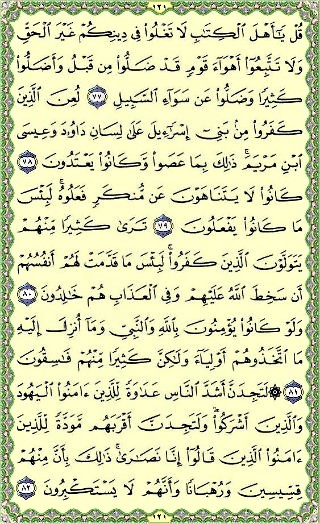 ١٢١
قُلْ يَـٰٓأَهْلَ ٱلْكِتَـٰبِ لَا تَغْلُوا۟ فِى دِينِكُمْ غَيْرَ ٱلْحَقِّ
وَلَا تَتَّبِعُوٓا۟ أَهْوَآءَ قَوْمٍ قَدْ ضَلُّوا۟ مِن قَبْلُ وَأَضَلُّوا۟
كَثِيرًا وَضَلُّوا۟ عَن سَوَآءِ ٱلسَّبِيلِ ٧٧ لُعِنَ ٱلَّذِينَ
كَفَرُوا۟ مِنۢ بَنِىٓ إِسْرَٰٓءِيلَ عَلَىٰ لِسَانِ دَاوُۥدَ وَعِيسَى
ٱبْنِ مَرْيَمَ ۚ ذَٰلِكَ بِمَا عَصَوا۟ وَّكَانُوا۟ يَعْتَدُونَ ٧٨
كَانُوا۟ لَا يَتَنَاهَوْنَ عَن مُّنكَرٍ فَعَلُوهُ ۚ لَبِئْسَ
مَا كَانُوا۟ يَفْعَلُونَ ٧٩ تَرَىٰ كَثِيرًا مِّنْهُمْ
يَتَوَلَّوْنَ ٱلَّذِينَ كَفَرُوا۟ ۚ لَبِئْسَ مَا قَدَّمَتْ لَهُمْ أَنفُسُهُمْ
أَن سَخِطَ ٱللَّهُ عَلَيْهِمْ وَفِى ٱلْعَذَابِ هُمْ خَـٰلِدُونَ ٨٠
وَلَوْ كَانُوا۟ يُؤْمِنُونَ بِٱللَّهِ وَٱلنَّبِىِّ وَمَآ أُنزِلَ إِلَيْهِ
مَا ٱتَّخَذُوهُمْ أَوْلِيَآءَ وَلَـٰكِنَّ كَثِيرًا مِّنْهُمْ فَـٰسِقُونَ
٨١ ۞ لَتَجِدَنَّ أَشَدَّ ٱلنَّاسِ عَدَٰوَةً لِّلَّذِينَ ءَامَنُوا۟ ٱلْيَهُودَ
وَٱلَّذِينَ أَشْرَكُوا۟ ۖ وَلَتَجِدَنَّ أَقْرَبَهُم مَّوَدَّةً لِّلَّذِينَ
ءَامَنُوا۟ ٱلَّذِينَ قَالُوٓا۟ إِنَّا نَصَـٰرَىٰ ۚ ذَٰلِكَ بِأَنَّ مِنْهُمْ
قِسِّيسِينَ وَرُهْبَانًا وَأَنَّهُمْ لَا يَسْتَكْبِرُونَ ٨٢
١٢١